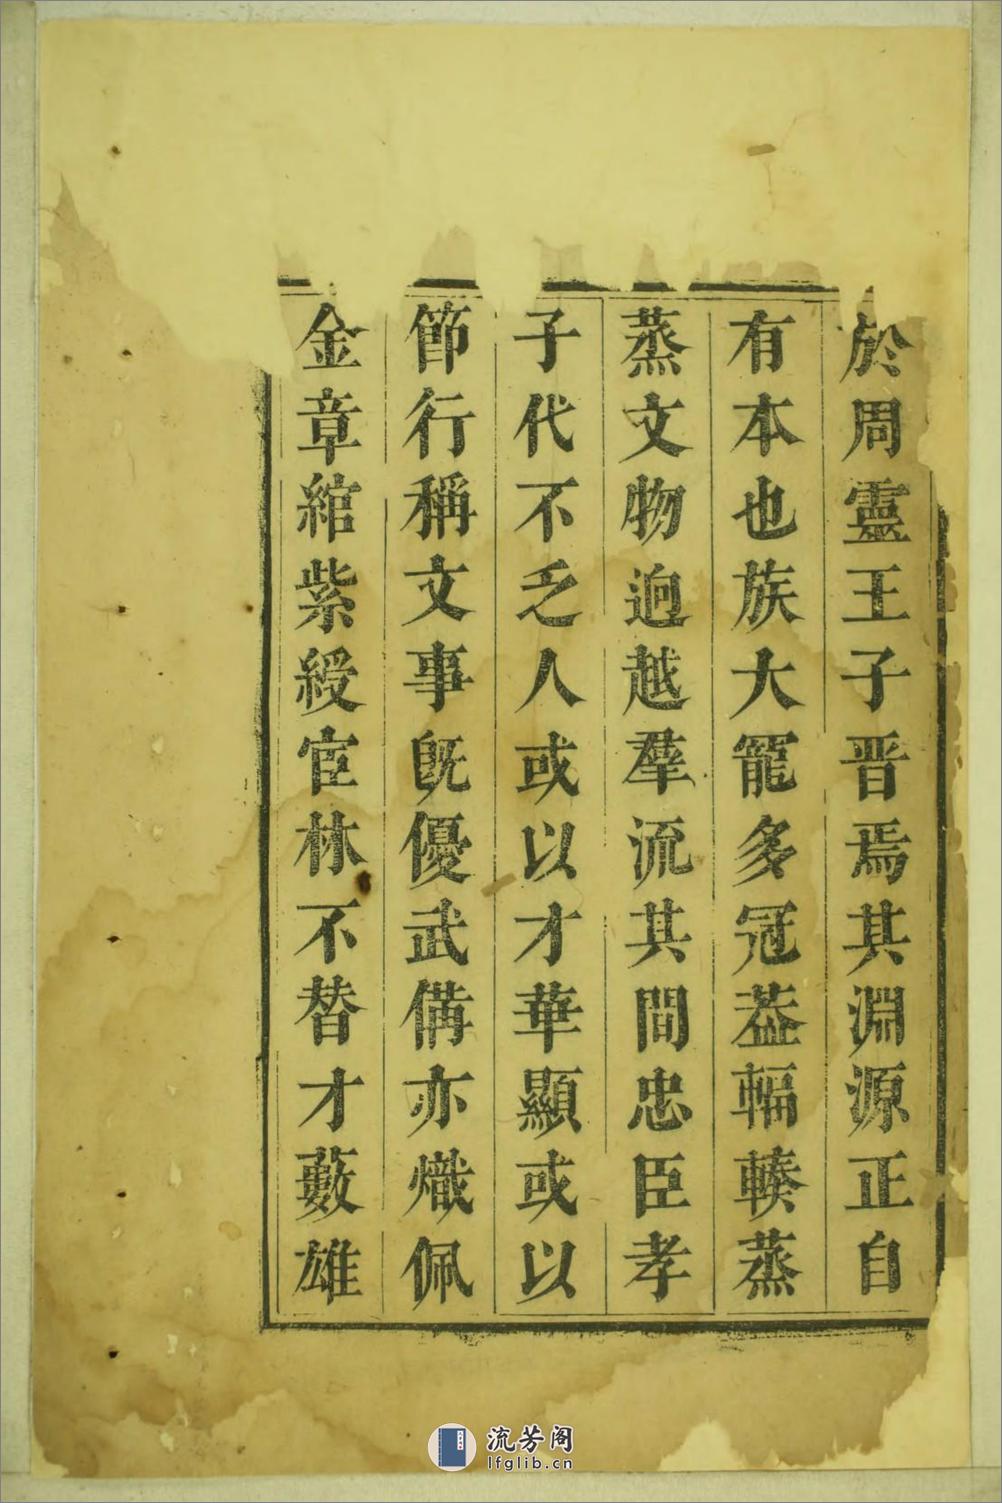 於周靈王子晋焉其淵源正自
有本也族大寵多冠葢輻輳蒸
蒸文物逈越羣流其間忠臣孝
子代不乏人或以才華顯或以
節行稱文事旣優武備亦熾佩
金章綰紫綬宦林不替才藪雄
流芳阁
lfglib.cn